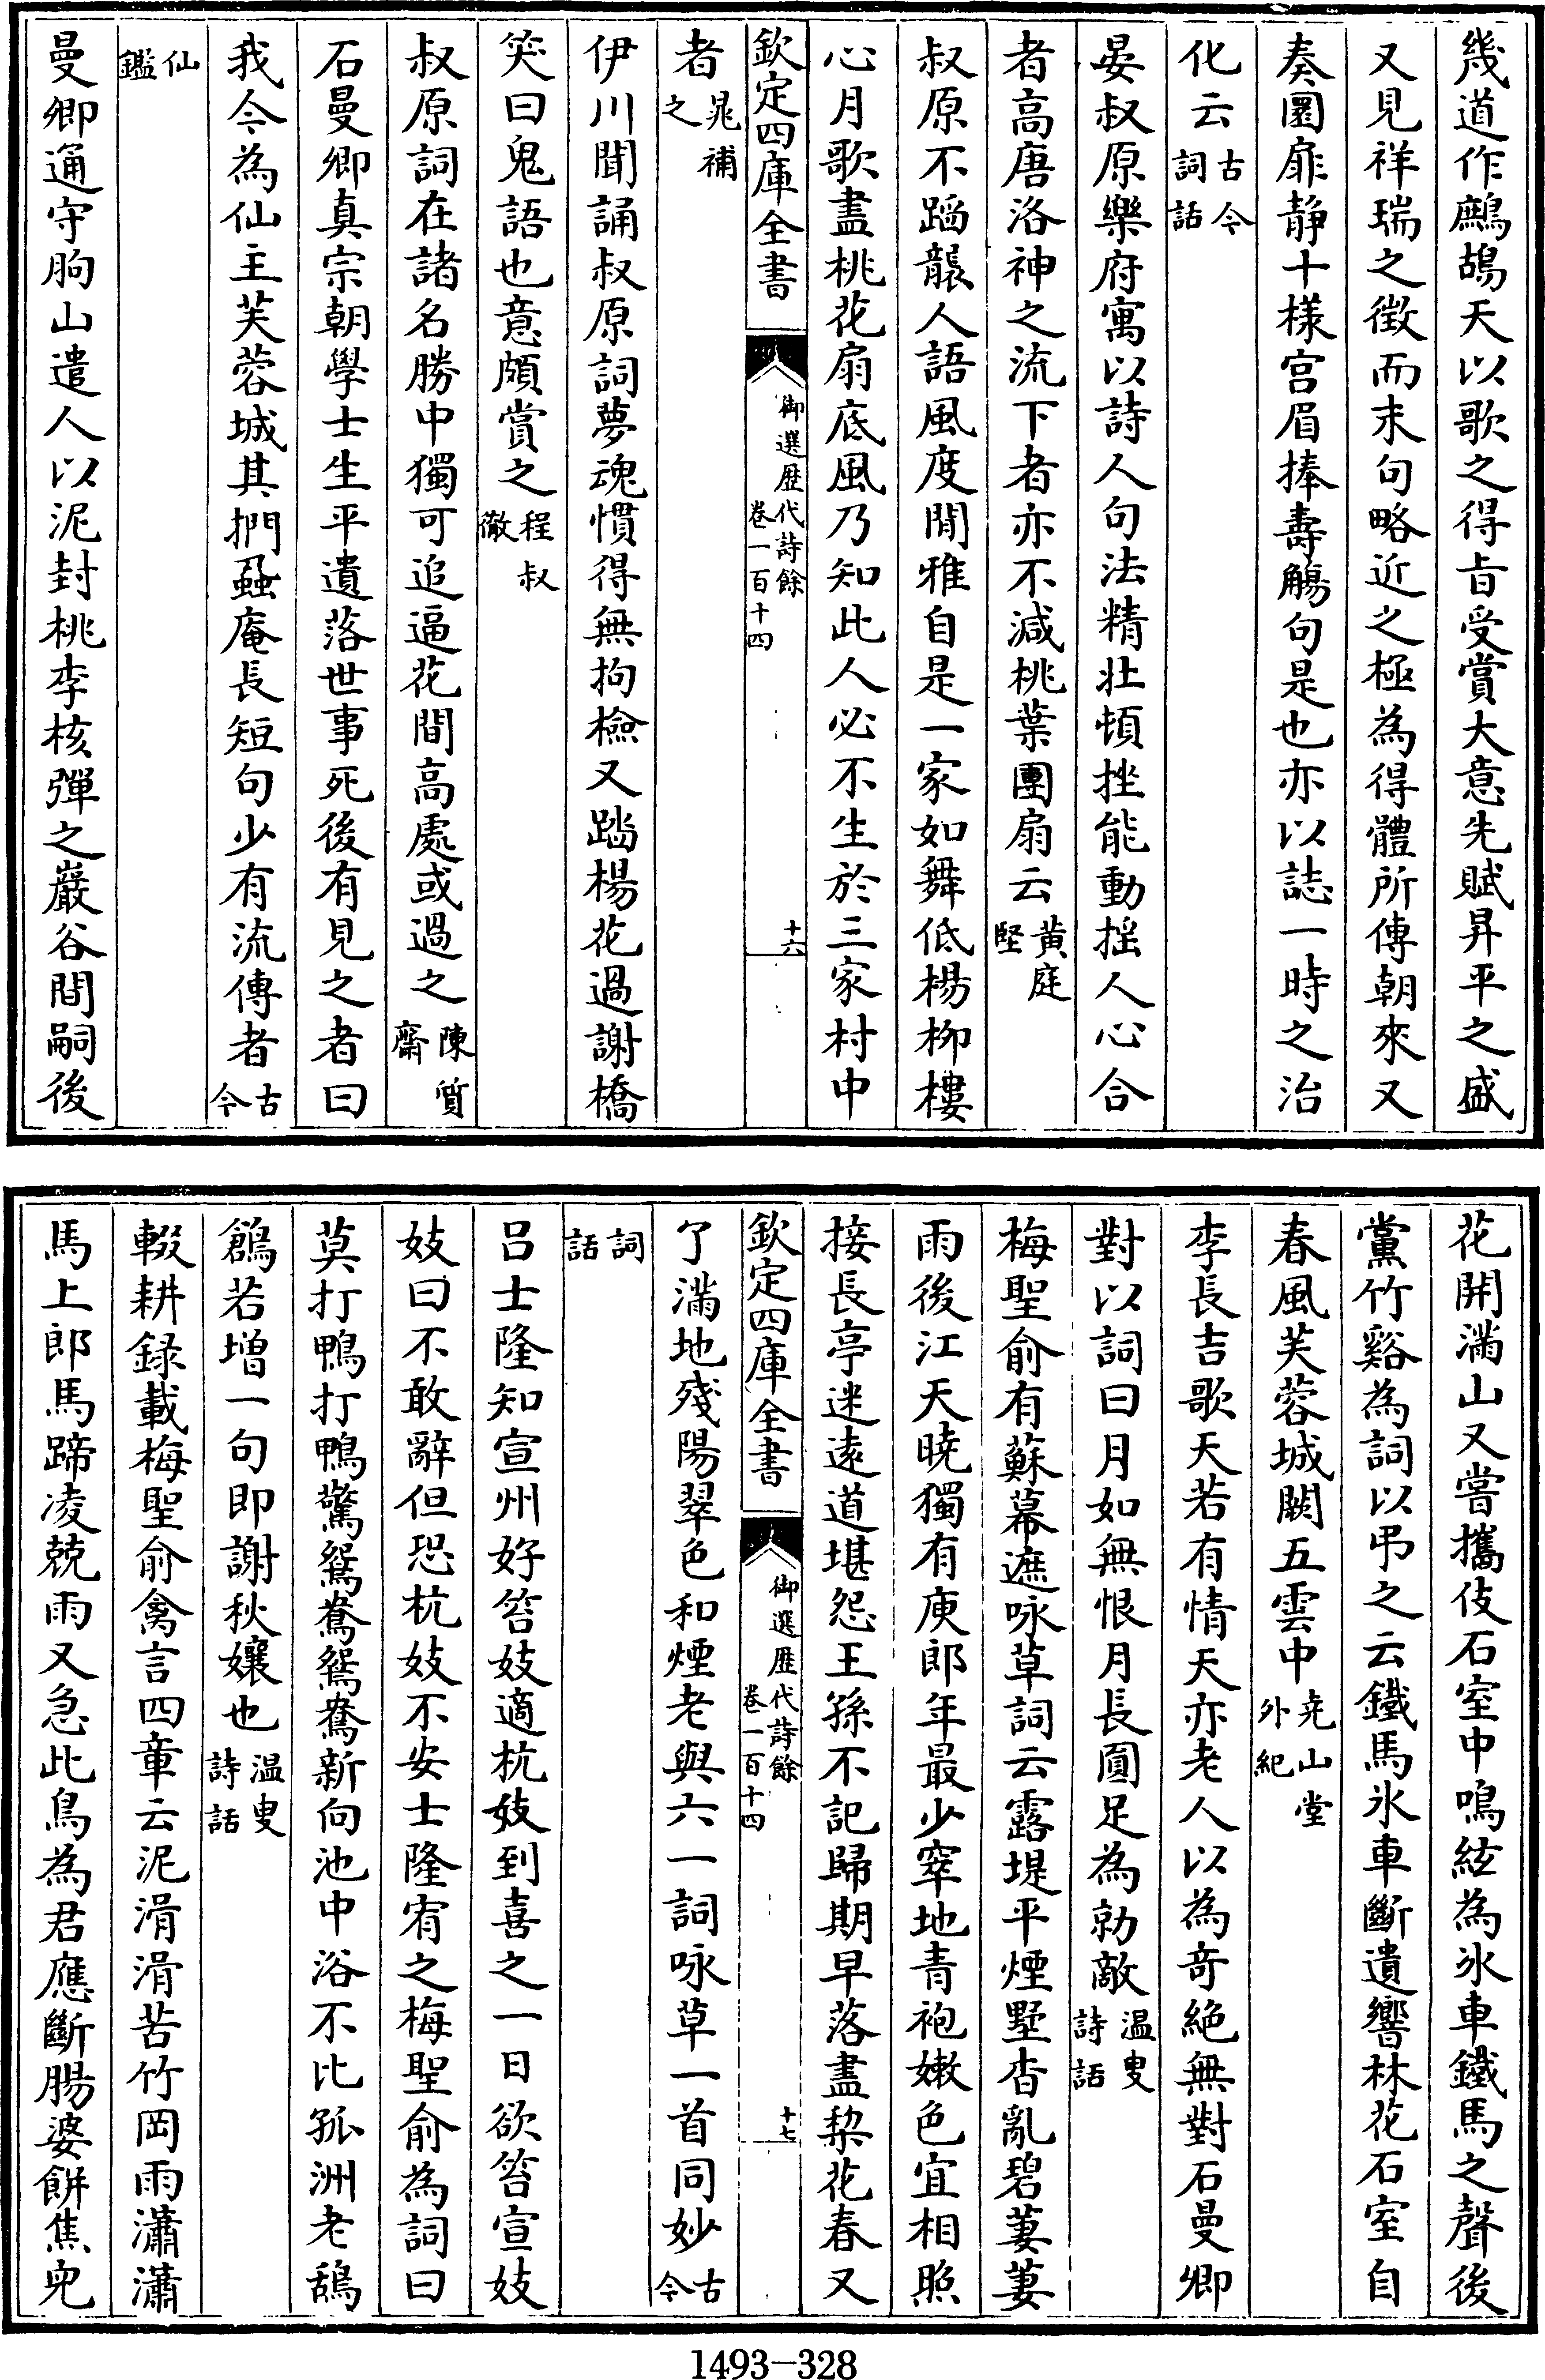 幾道作鷓鴣天以歌之得㫖受賞大意先賦昇平之盛
又見祥瑞之徴而末句略近之極為得體所傳朝來又
奏圜扉静十様宫眉捧壽觴句是也亦以誌一時之治
化云古今詞話
晏叔原樂府寓以詩人句法精壯頓挫能動揺人心合
者髙唐洛神之流下者亦不減桃葉團扇云黄庭堅
叔原不蹈襲人語風度閒雅自是一家如舞低楊柳樓
心月歌盡桃花扇底風乃知此人必不生於三家村中
欽定四庫全書
御選歴代詩餘
卷一百十四
十六
者晁補之
伊川聞誦叔原詞夢魂慣得無拘檢又踏楊花過謝橋
笑曰鬼語也意頗賞之程叔徹
叔原詞在諸名勝中獨可追逼花間髙處或過之陳質齋
石曼卿真宗朝學士生平遺落世事死後有見之者曰
我今為仙主芙蓉城其捫蝨庵長短句少有流傳者古今
仙鑑
曼卿通守朐山遣人以泥封桃李核彈之巖谷間嗣後
花開滿山又嘗攜伎石室中鳴絃為氷車鐵馬之聲後
黨竹谿為詞以弔之云鐵馬氷車斷遺響林花石室自
春風芙蓉城闕五雲中尭山堂外紀
李長吉歌天若有情天亦老人以為竒絶無對石曼卿
對以詞曰月如無恨月長圓足為勍敵温叟詩話
梅聖俞有蘇幕遮咏草詞云露堤平煙墅杳亂碧萋萋
雨後江天曉獨有庾郎年最少窣地青袍嫰色宜相照
接長亭迷逺道堪怨王孫不記歸期早落盡棃花春又
欽定四庫全書
御選歴代詩餘
卷一百十四
十七
了滿地殘陽翠色和煙老與六一詞咏草一首同妙古今
詞話
吕士隆知宣州好笞妓適杭妓到喜之一日欲笞宣妓
妓曰不敢辭但恐杭妓不安士隆宥之梅聖俞為詞曰
莫打鴨打鴨驚鴛鴦鴛鴦新向池中浴不比孤洲老鵠
鶬若增一句即謝秋孃也温叟詩話
輟耕録載梅聖俞禽言四章云泥滑滑苦竹岡雨瀟瀟
馬上郎馬蹄凌兢雨又急此鳥為君應斷腸婆餅焦兒
1493—328